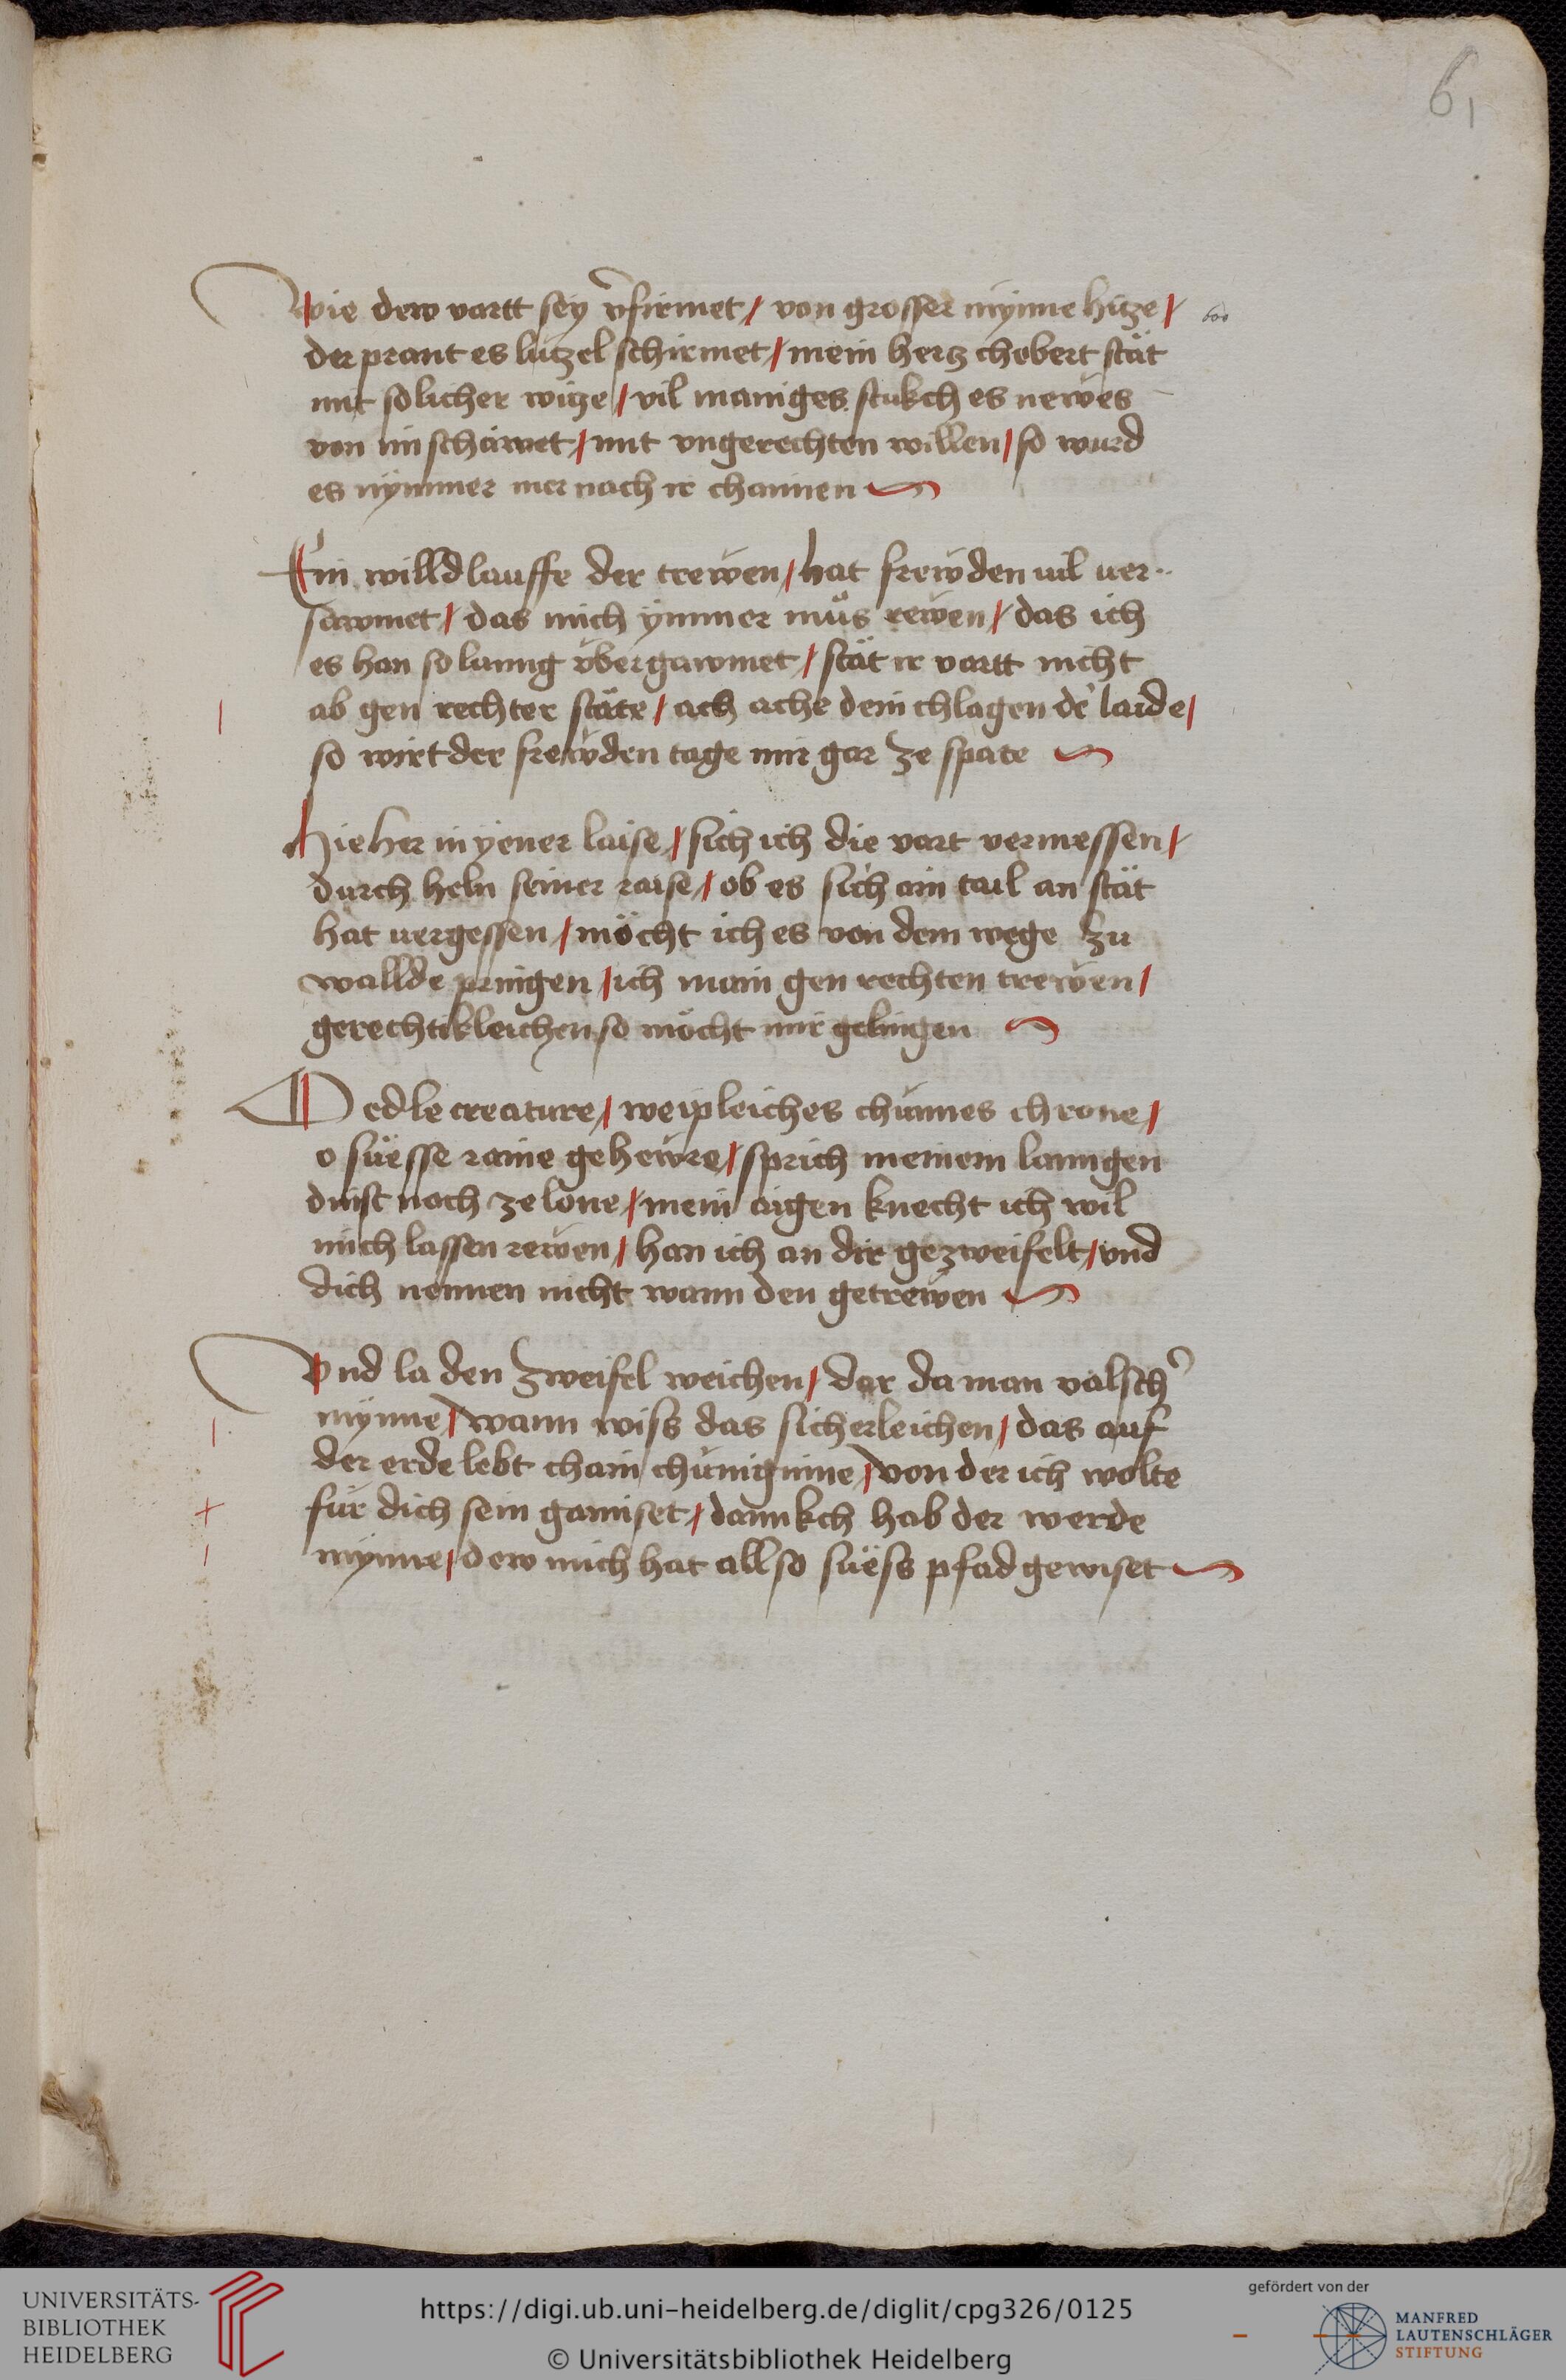 61
Wie dew vartt sey v̉firmet / von grosser mynne hitze /
600
der prant es lützel schirmet / mein hertz chobert stät
mit solicher witze / vil maniges stukch es newes
von im schawet / mit vngerechten willen / so wurd
es nymmer mer nach ir channen
Ein willd lauffe der trewen / hat frewden vil ver
sawmet / das mich ymmer mus rewen / das ich
es han so lanng vbergawmet / stät ir vartt nicht
ab gen rechter stäte / ach ache dein chlagen d' laide /
so wirt der frewden tage mir gar ze spate
Hie her in yener laise / sich ich die vart vermessen /
durch heln seiner raise / ob es sich ain tail an stät
hat vergessen / möcht ich es von dem wege zu
wallde pringen / ich main gen rechten trewen /
gerechtikleichen so möcht mir gelingen
O edle creature / weipleiches chunnes chrone /
o suësse raine gehewre / sprich meinem lanngen
dinst noch ze lone / mein aigen knecht ich wil
mich lassen rewen / han ich an dir gezweifelt / vnd
dich nennen nicht wann den getrewen
Vnd la den zweifel weichen / dar da man valsch'
mynne / wann wiss das sicherleichen / das auf
der erde lebt chain chüniginne / von der ich wolte
für dich sein gamiset / dannkch hab der werde
mynne / dew mich hat allso suëss pfad gewiset
UNIVERSITÄTS-
BIBLIOTHEK
HEIDELBERG
https://digi.ub.uni-heidelberg.de/diglit/cpg326/0125
© Universitätsbibliothek Heidelberg
gefördert von der
MANFRED
LAUTENSCHLÄGER
STIFTUNG